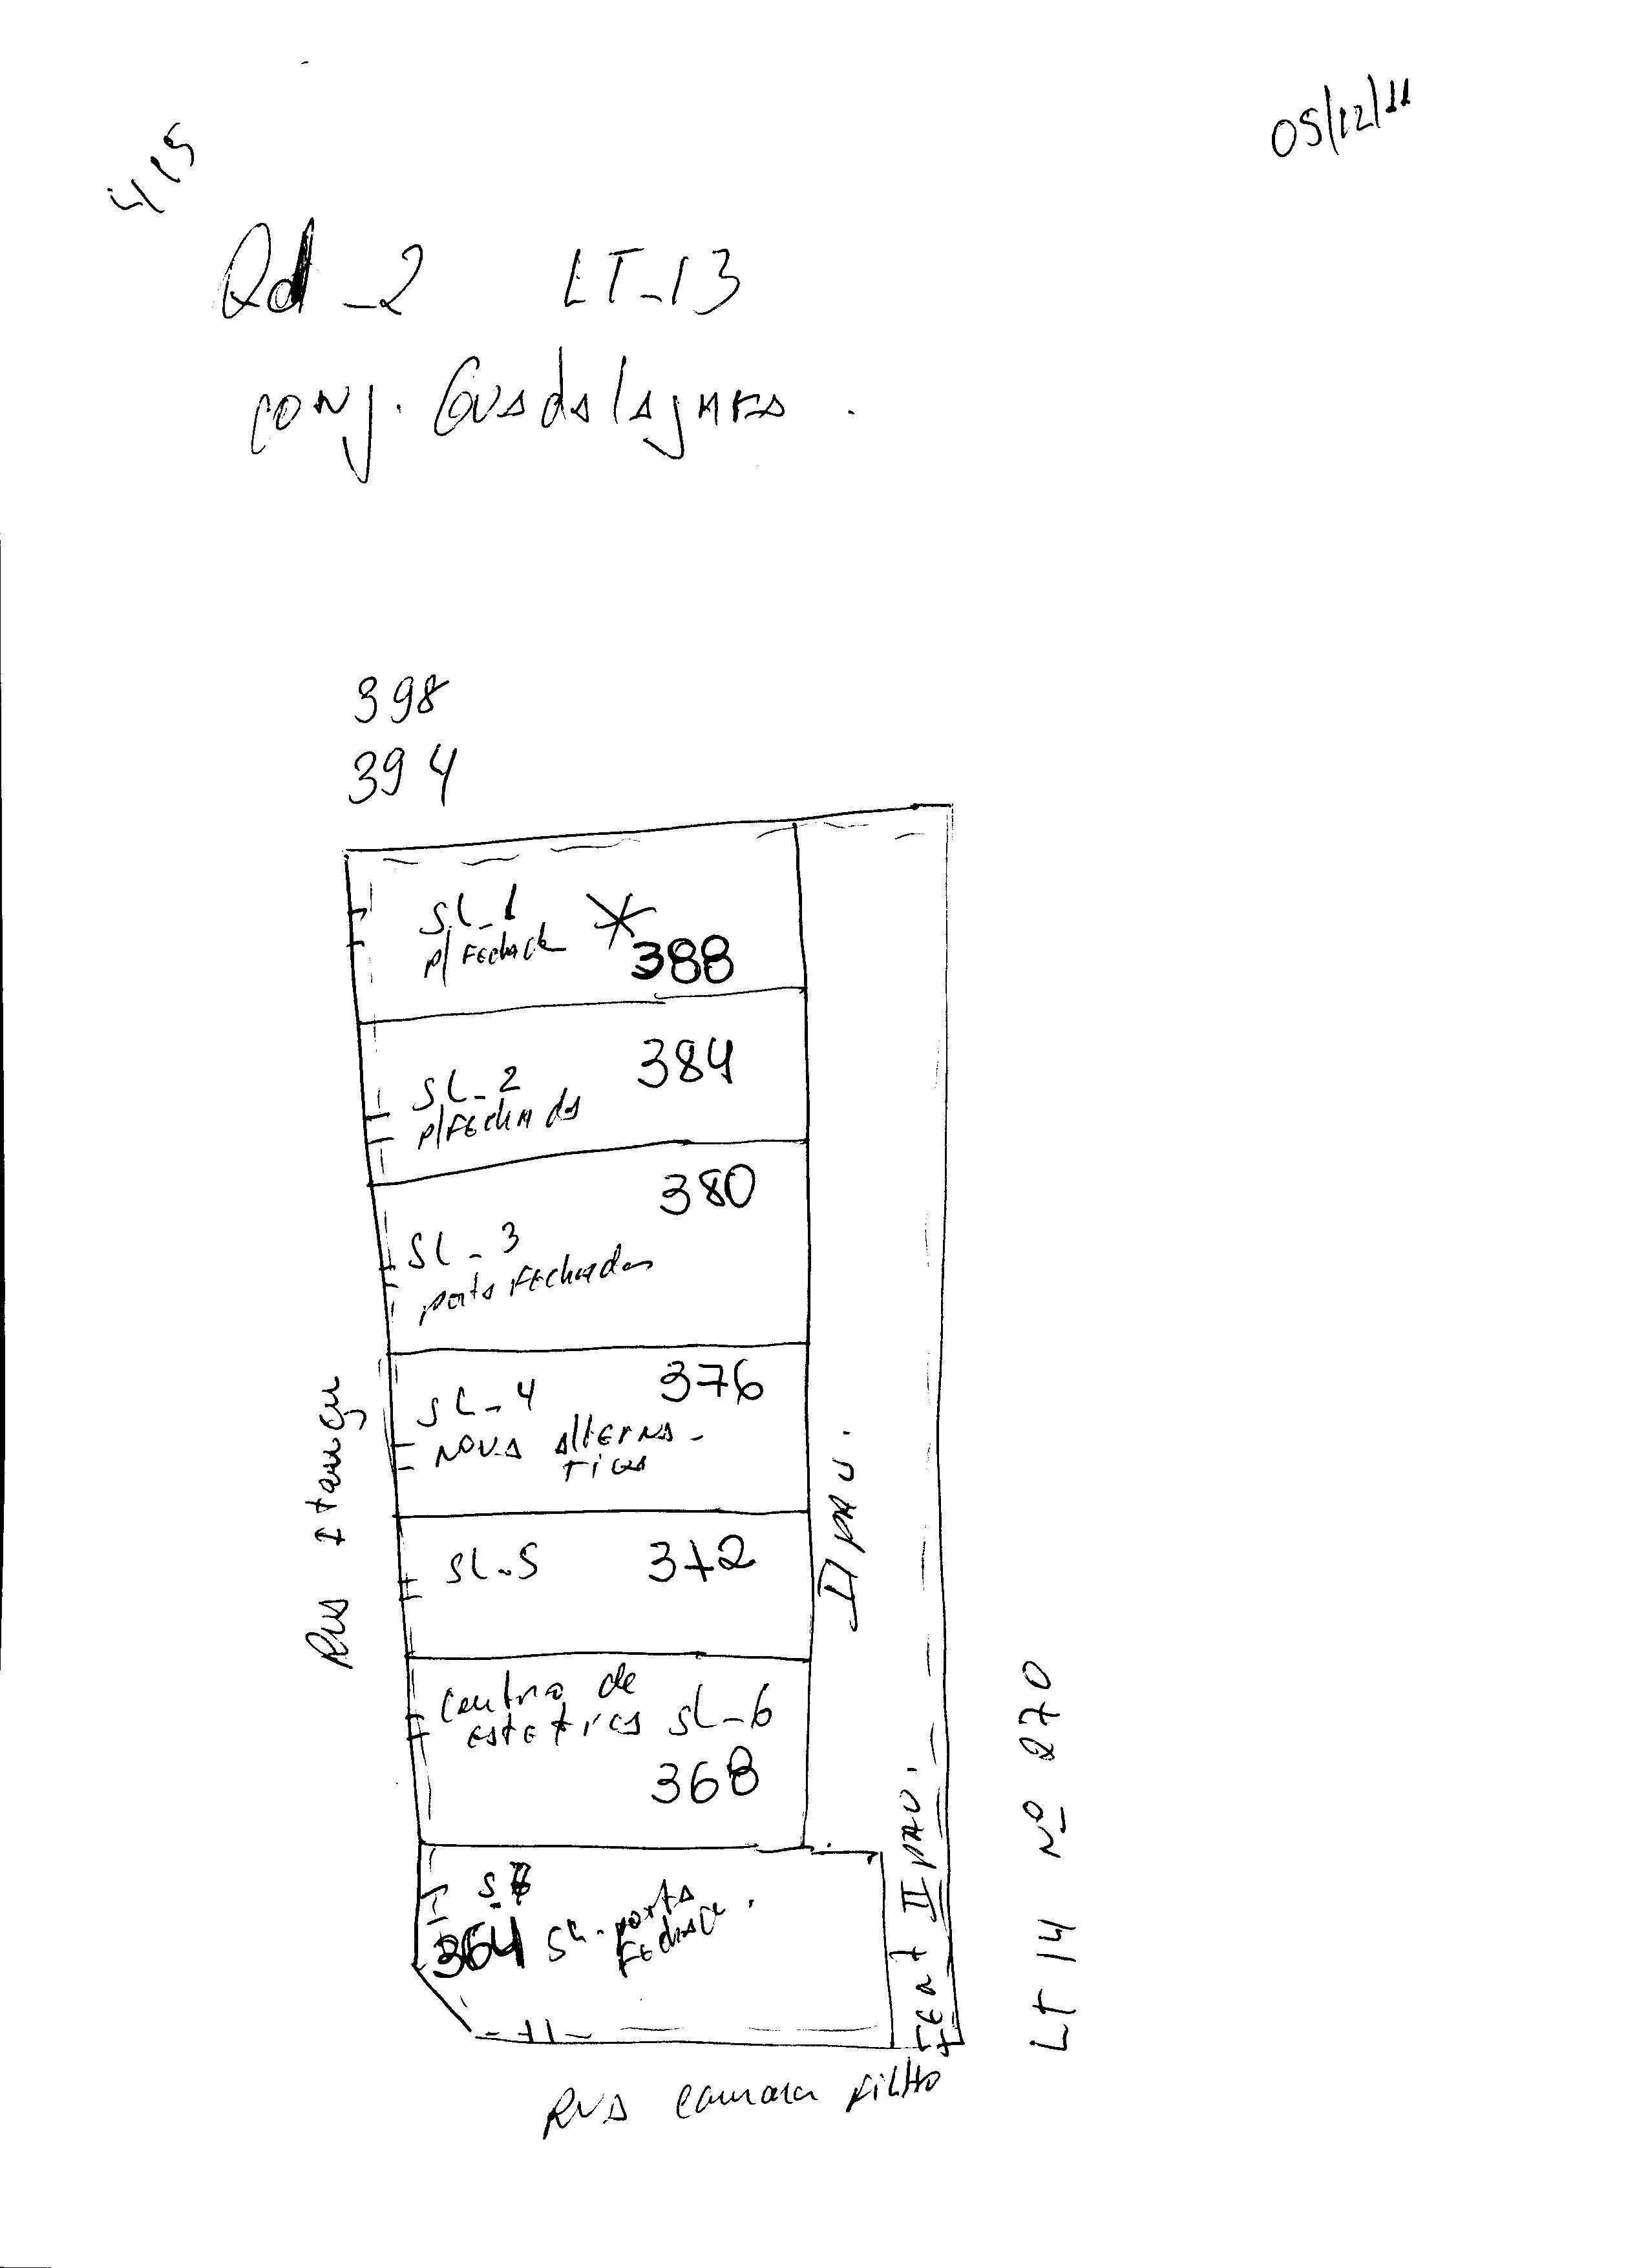 415
05/12/11
Qd_2 LT_13
conj. Guadalajara.
398
394
SL_1
p/ Fechada
388
SL_2
384
p/Fechada
380
SL_3
porta Fechada
SL_4
376
nova alterna-
tiva
SL_5 372
Centro de
estetica SL_6
368
364 SL-porta
Fechada.
II pav.
II pav.
LT 14 Nº 270
Rua camara Filho
Rua